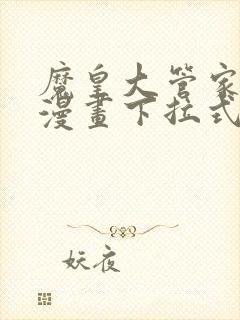 魔皇大管家
漫畫下拉式
妖夜